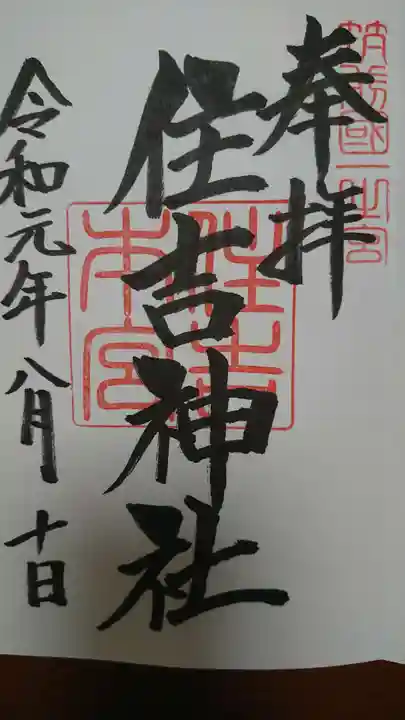 筑前國一之宮
奉拝
住吉神社
住吉本宮
令和元年八月十日